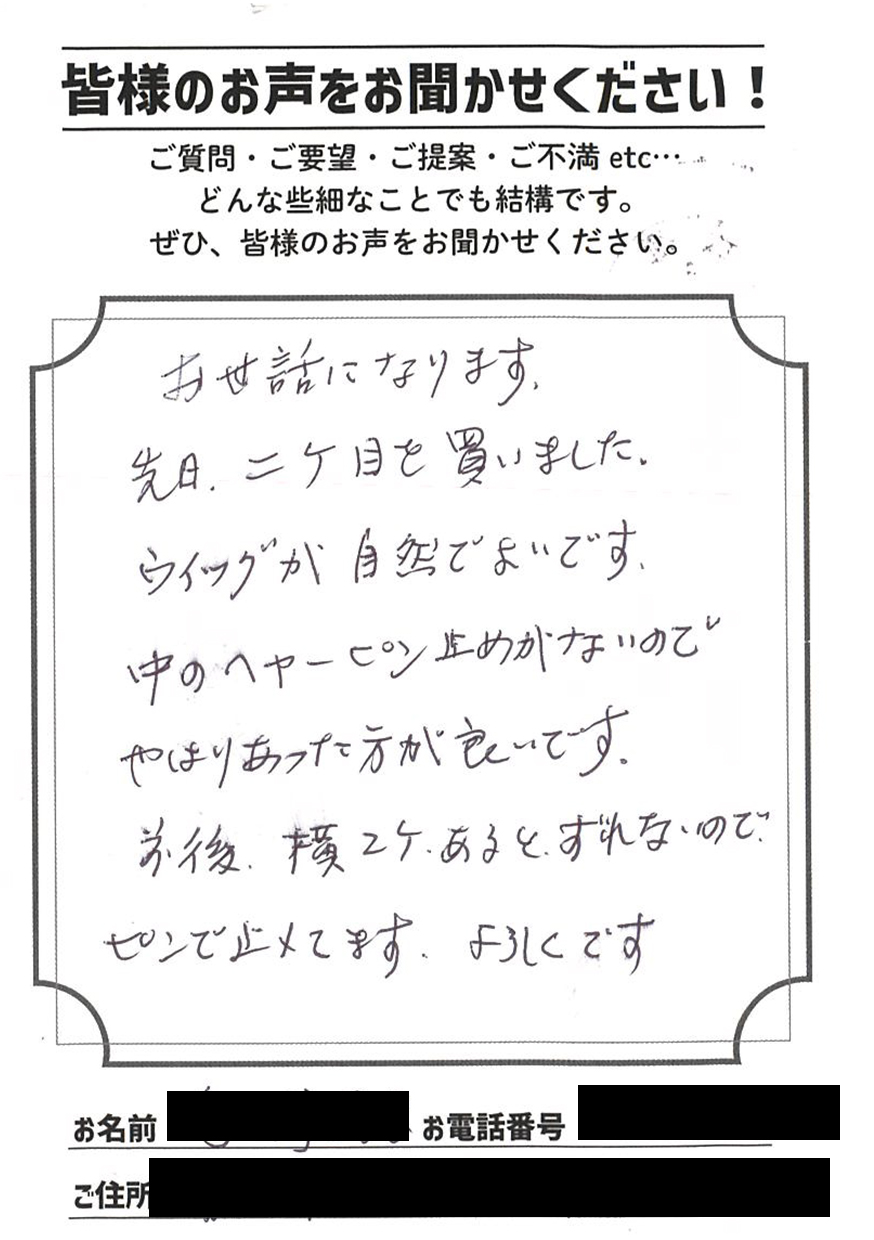 皆様のお声をお聞かせください！
ご質問・ご要望・ご提案・ご不満 etc…
どんな些細なことでも結構です。
ぜひ、皆様のお声をお聞かせください。
お世話になります。
先日、二ケ目を買いました。
ウイッグが自然でよいです。
中のヘヤーピン止めがないので
やはりあった方が良いです。
前後、横2ケ、あると、ずれないので、
ピンで止メてます、よろしくです
お名前 お電話番号
ご住所